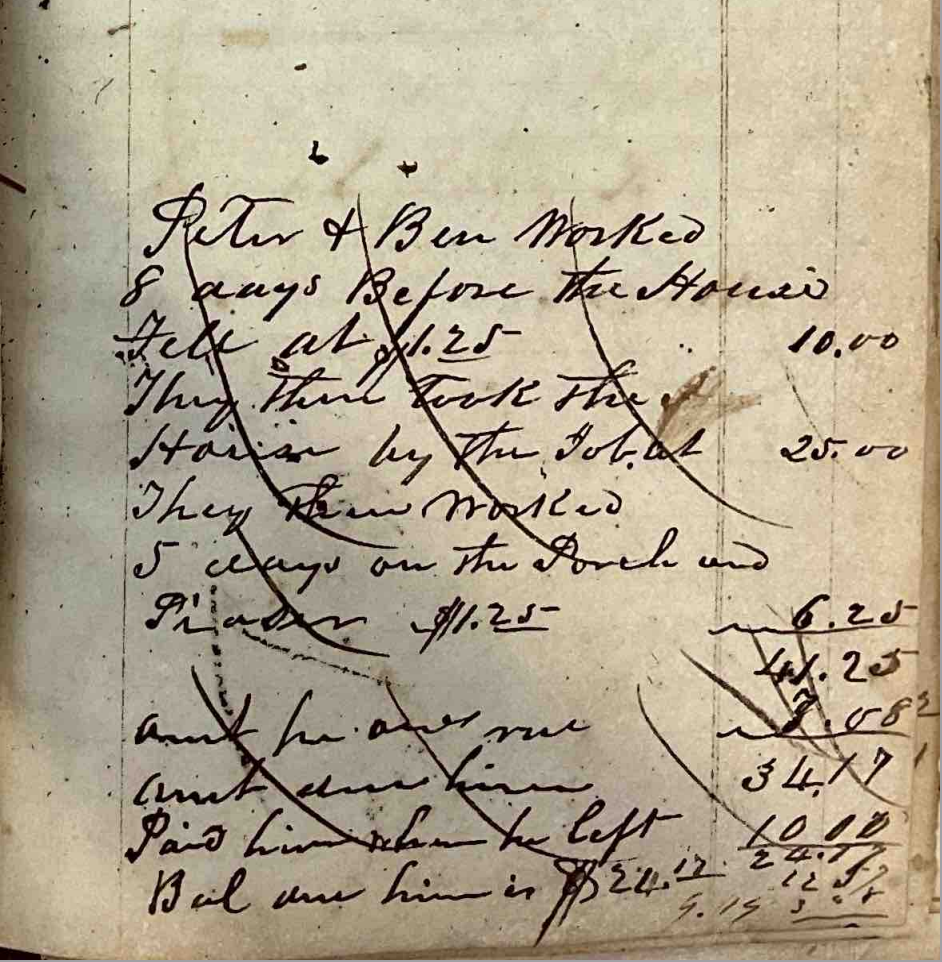 Peter & Ben Worked
8 days Before the House
Fell at $1.25 10.00
They then took the
House by the Job at 25.00
They then Worked
5 days on the Porch and
$1.25 6.25
41.25
amt he owes me 7.08
amt due him 34.17
Paid him when he left 10.00
24.17
Bal due him is $24.17